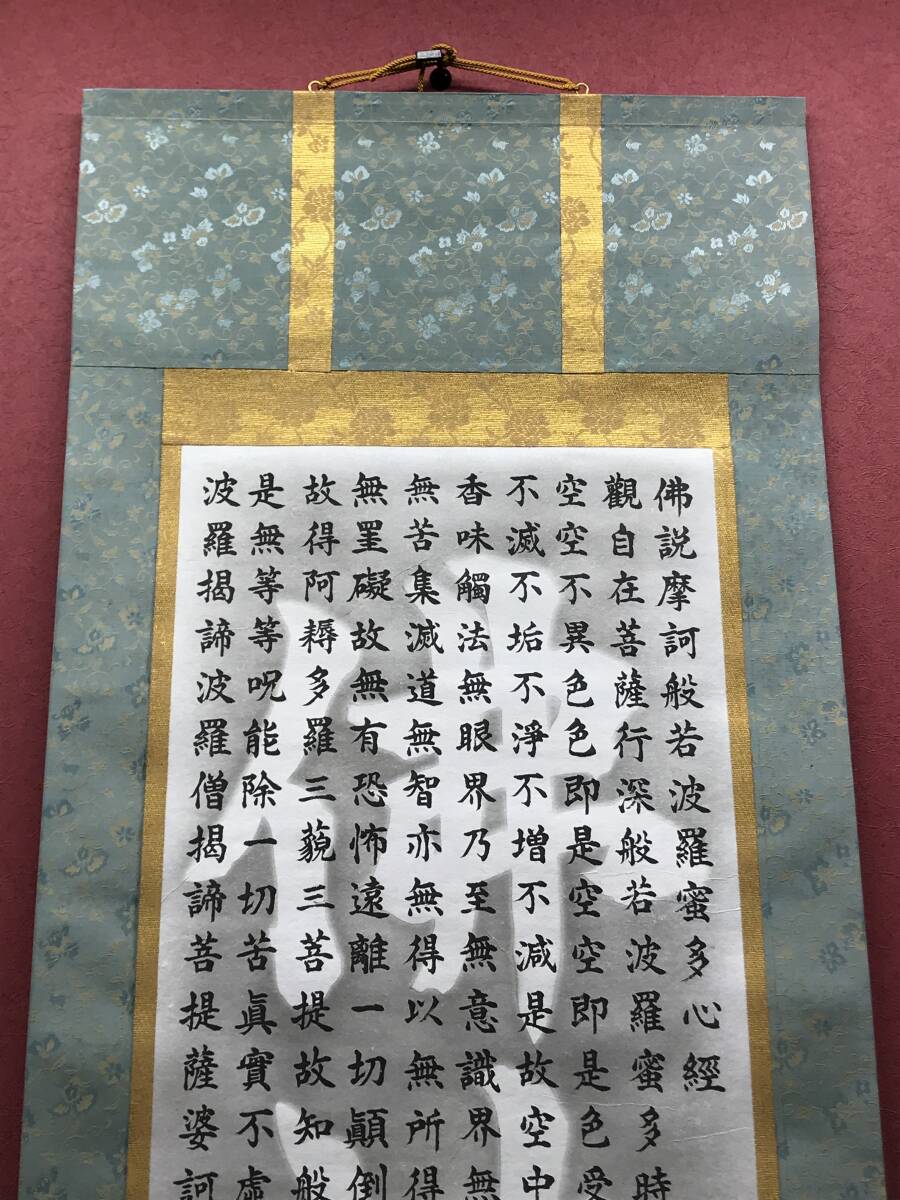 佛説摩訶般若波羅蜜多心經
觀自在菩薩行深般若波羅蜜多時
空空不異色色即是空空即是色受
不滅不垢不淨不增不減是故空中
香味觸法無眼界乃至無意識界無
無苦集滅道無智亦無得以無所得
無罣礙故無有恐怖遠離一切顛倒
故得阿耨多羅三藐三菩提故知般
是無等等呪能除一切苦眞實不虛
波羅揭諦波羅僧揭諦菩提薩婆訶